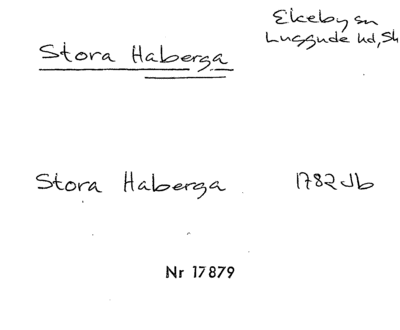 Ekeby sn
Stora Haberga
Luggude hd, Sk
Stora Haberga 1782 Jb
Nr 17879